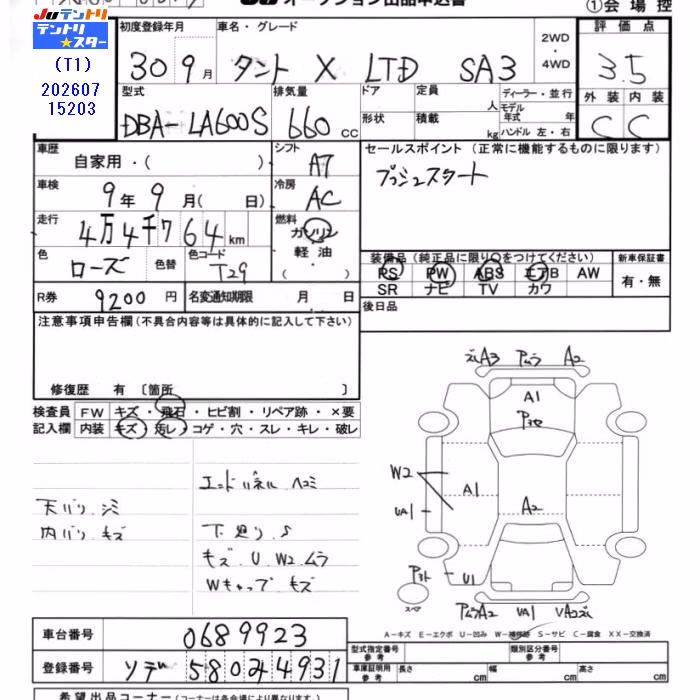 JU オークション出品申込書
①会場控
JUテントリ
テントリ
★スター
(T1)
202607
15203
初度登録年月 車名・グレード 2WD・4WD 評価点
30 9月 タント X LTD SA3 3.5
型式 排気量 ドア 定員 人 ディーラー・並行 外装 内装
DBA-LA600S 660cc 形状 積載 kg モデル年式 年 ハンドル 左・右 C C
車歴 自家用・( ) シフト AT セールスポイント(正常に機能するものに限ります)
プッシュスタート
車検 9年9月(日) 冷房 AC
走行 4万4千764km 燃料 ガソリン・軽油・( )
色 ローズ 色替 色コード T29
装備品(純正品に限り○をつけてください) 新車保証書
PS PW ABS エアB AW 有・無
SR ナビ TV カワ
R券 9200円 名変通知期限 月 日 後日品
注意事項申告欄(不具合内容等は具体的に記入して下さい)
修復歴 有 〔箇所 〕
検査員 FW キズ・飛石・ヒビ割・リペア跡・×要
記入欄 内装 キズ・汚レ・コゲ・穴・スレ・キレ・破レ
エンドパネル ヘコミ
天バリ シミ
内バリ キズ
下廻り S
キズ U W2 ムラ
Wキャップ キズ
A3 Pムラ A2
A1
W2
A1
UA1
A2
U1
スペア
PムラA2 UA1
A-キズ E-エクボ U-凹み W-補修跡 S-サビ C-腐食 XX-交換済
車台番号 0689923
登録番号 ソデ 58024931
型式指定番号 参考 類別区分番号 参考
車庫証明用 参考 長さ cm 幅 cm 高さ cm
希望出品コーナー(コーナーは各会場により異なります。)